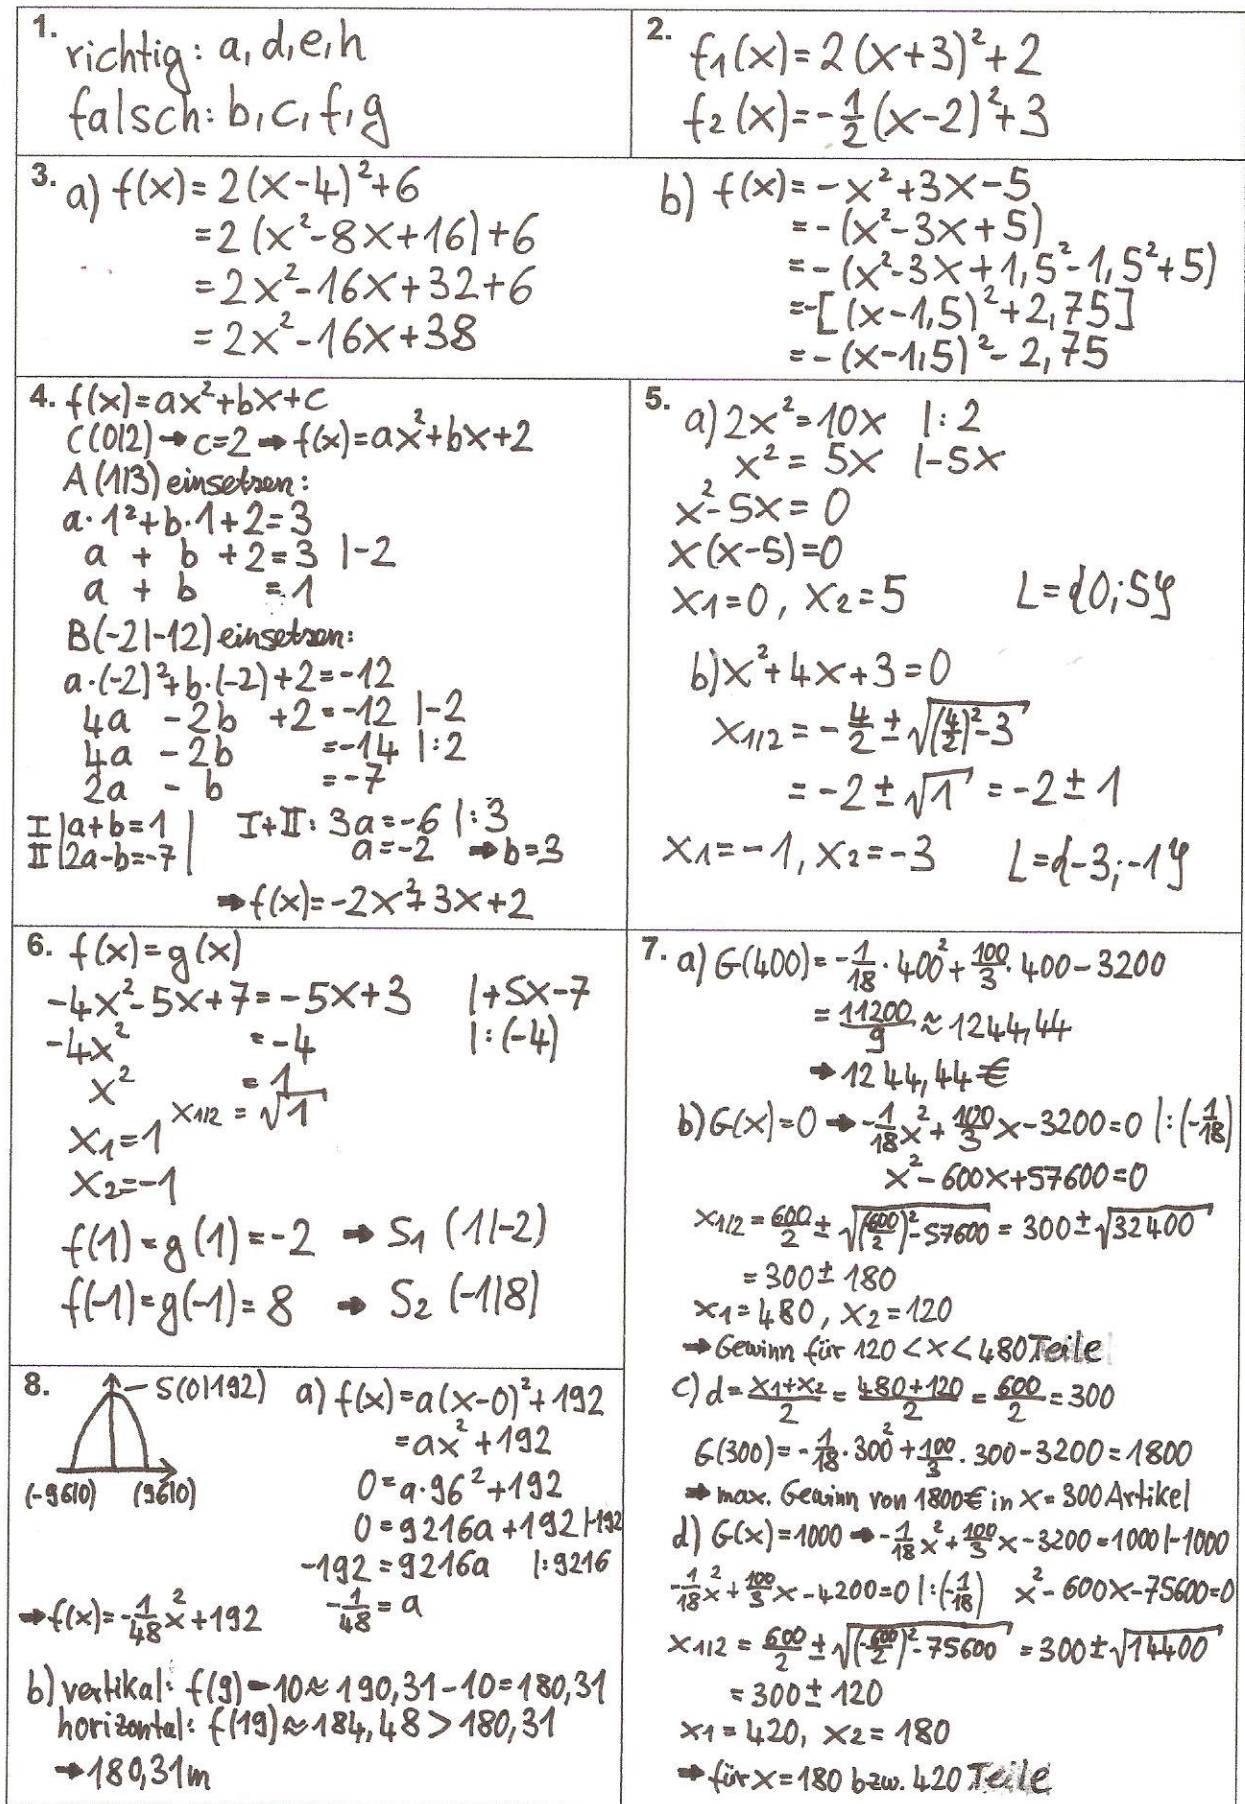 1. richtig: a, d, e, h
falsch: b, c, f, g
2. f₁(x) = 2(x+3)²+2
f₂(x) = -1/2(x-2)²+3
3. a) f(x) = 2(x-4)²+6
= 2(x²-8x+16)+6
= 2x²-16x+32+6
= 2x²-16x+38
b) f(x) = -x²+3x-5
= -(x²-3x+5)
= -(x²-3x+1,5²-1,5²+5)
= -[(x-1,5)²+2,75]
= -(x-1,5)²-2,75
4. f(x) = ax²+bx+c
C(0|2) → c=2 → f(x) = ax²+bx+2
A(1|3) einsetzen:
a·1²+b·1+2=3
a + b +2=3 |-2
a + b =1
B(-2|-12) einsetzen:
a·(-2)²+b·(-2)+2=-12
4a -2b +2=-12 |-2
4a -2b =-14 |:2
2a - b =-7
I |a+b=1 | I+II: 3a=-6 |:3
II |2a-b=-7| a=-2 → b=3
→ f(x)=-2x²+3x+2
5. a) 2x²=10x |:2
x² = 5x |-5x
x²-5x=0
x(x-5)=0
x₁=0, x₂=5 L={0;5}
b) x²+4x+3=0
x₁/₂ = -4/2 ± √((4/2)²-3)
= -2 ± √1 = -2 ± 1
x₁=-1, x₂=-3 L={-3;-1}
6. f(x)=g(x)
-4x²-5x+7=-5x+3 |+5x-7
-4x² =-4 |:(-4)
x² =1
x₁/₂ = √1
x₁=1
x₂=-1
f(1)=g(1)=-2 → S₁ (1|-2)
f(-1)=g(-1)=8 → S₂ (-1|8)
7. a) G(400)=-1/18·400²+100/3·400-3200
= 11200/9 ≈ 1244,44
→ 1244,44€
b) G(x)=0 → -1/18x²+100/3x-3200=0 |:(-1/18)
x²-600x+57600=0
x₁/₂ = 600/2 ± √((600/2)²-57600) = 300 ± √32400
= 300 ± 180
x₁=480, x₂=120
→ Gewinn für 120<x<480 Teile
c) d = (x₁+x₂)/2 = (480+120)/2 = 600/2 = 300
G(300)=-1/18·300²+100/3·300-3200=1800
→ max. Gewinn von 1800€ in x=300 Artikel
d) G(x)=1000 → -1/18x²+100/3x-3200=1000 |-1000
-1/18x²+100/3x-4200=0 |:(-1/18) x²-600x-75600=0
x₁/₂ = 600/2 ± √((-600/2)²-75600) = 300 ± √14400
= 300 ± 120
x₁=420, x₂=180
→ für x=180 bzw. 420 Teile
8. S(0|192)
(-96|0) (96|0)
a) f(x)=a(x-0)²+192
=ax²+192
0=a·96²+192
0=9216a+192 |-192
-192=9216a |:9216
-1/48=a
→ f(x)=-1/48x²+192
b) vertikal: f(9)-10≈190,31-10=180,31
horizontal: f(19)≈184,48>180,31
→ 180,31m